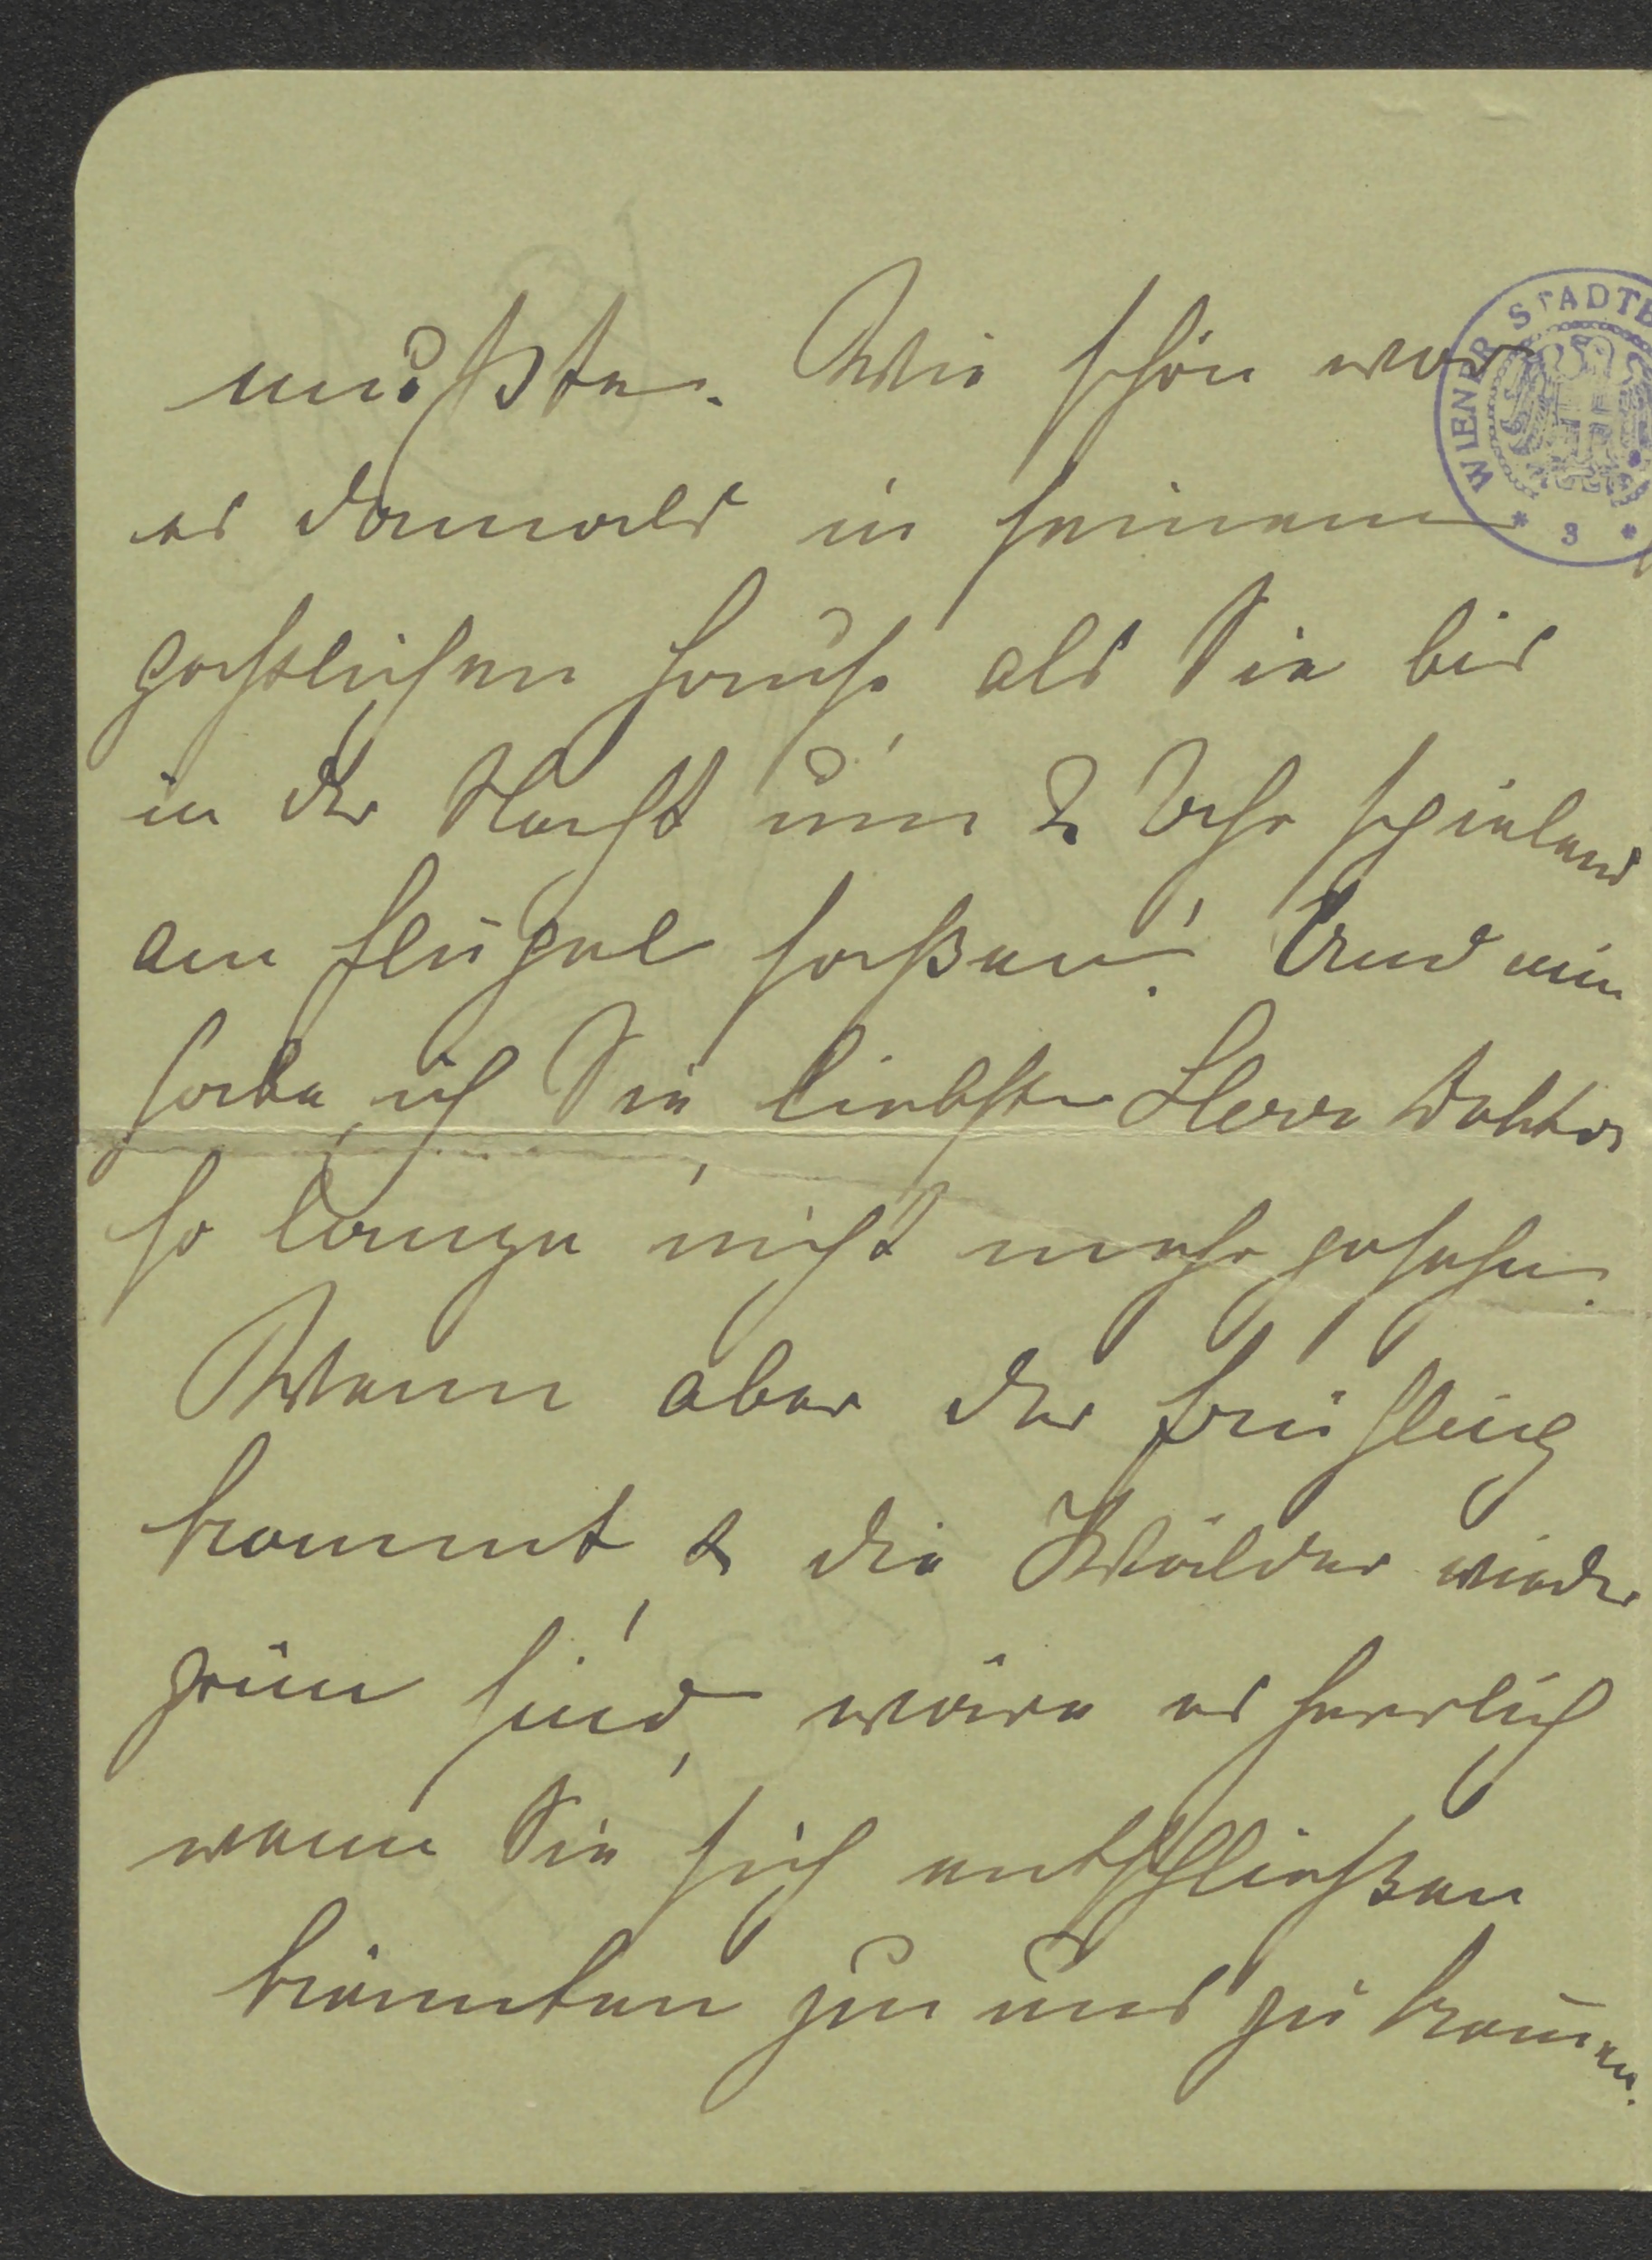 mußte. Wie schön war
es damals in seinem
gastlichen Hause als Sie bis
in der Nacht um 2 Uhr spielend
am Flügel saßen! Und nun
habe ich Sie liebster Herr Doktor
so lange nicht mehr gesehen.
Wenn aber der Frühling
kommt, & die Wälder wieder
grün sind, wäre es herrlich
wenn Sie sich entschließen
könnten zu uns zu kommen.
WIENER STADTB
* 3 *